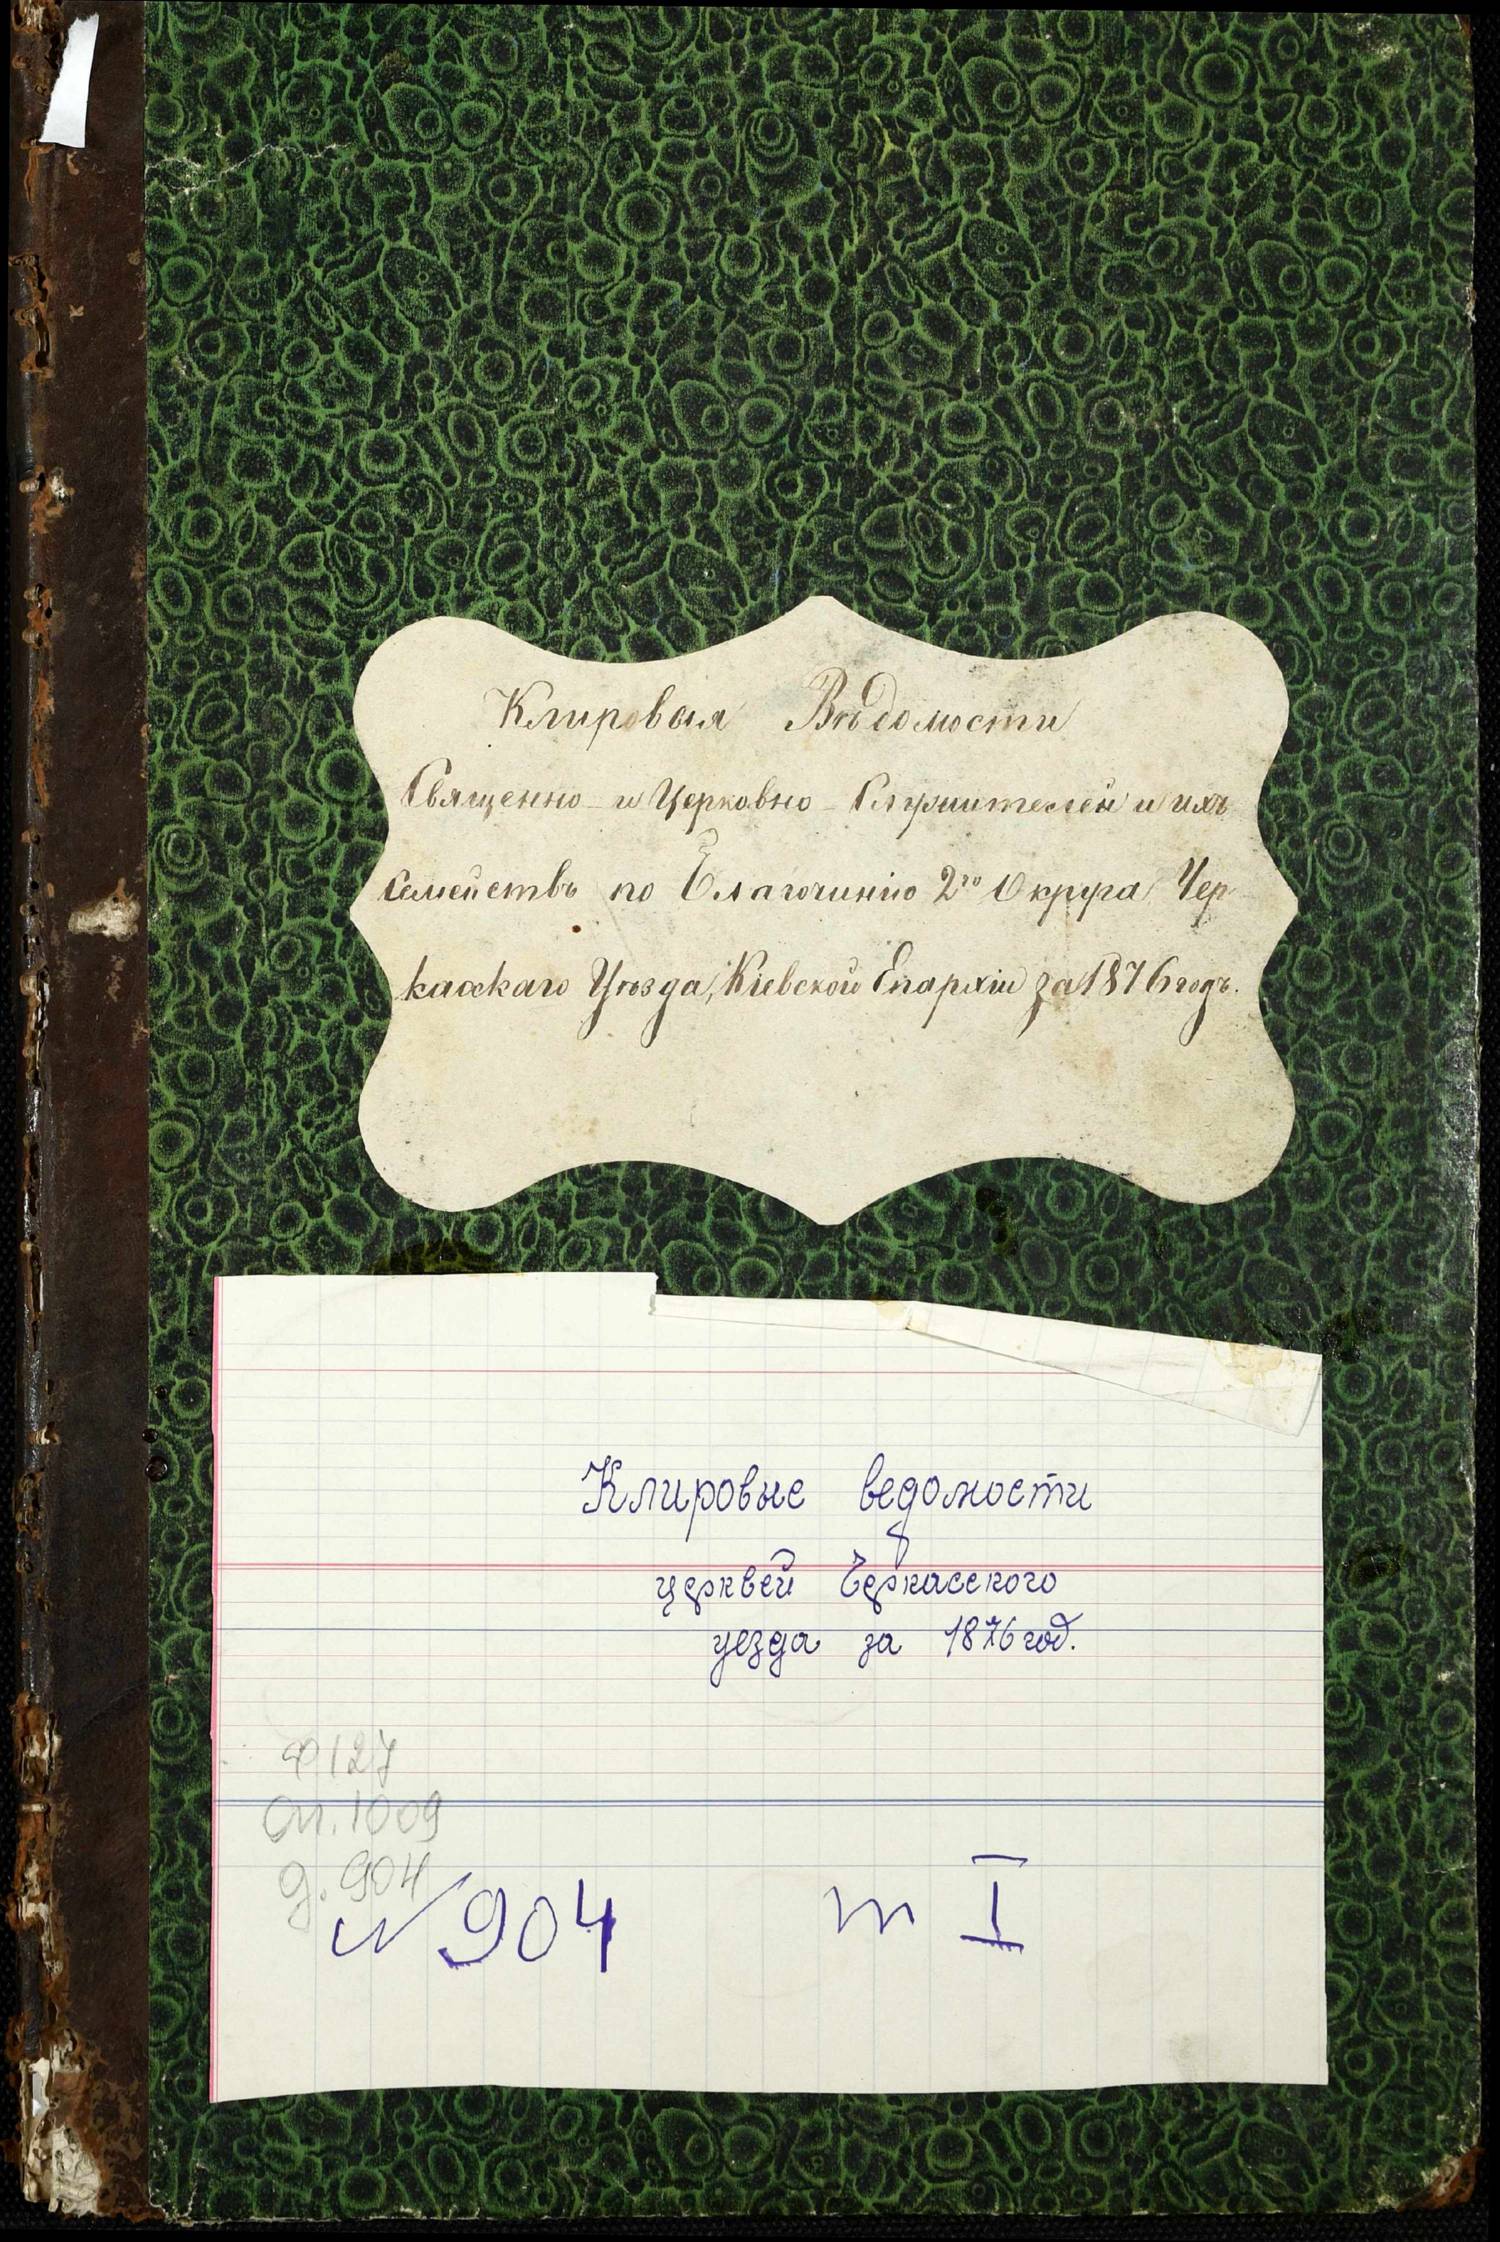 Клировыя Вѣдомости
Священно- и Церковно-Служителей и ихъ
Семействъ по Благочинію 2го Округа Чер-
касскаго Уѣзда, Кіевской Епархіи за 1876 годъ.
Клировые ведомости
церквей Черкасского
уезда за 1876 год.
Ф 127
Оп. 1009
д. 904
№ 904 т I